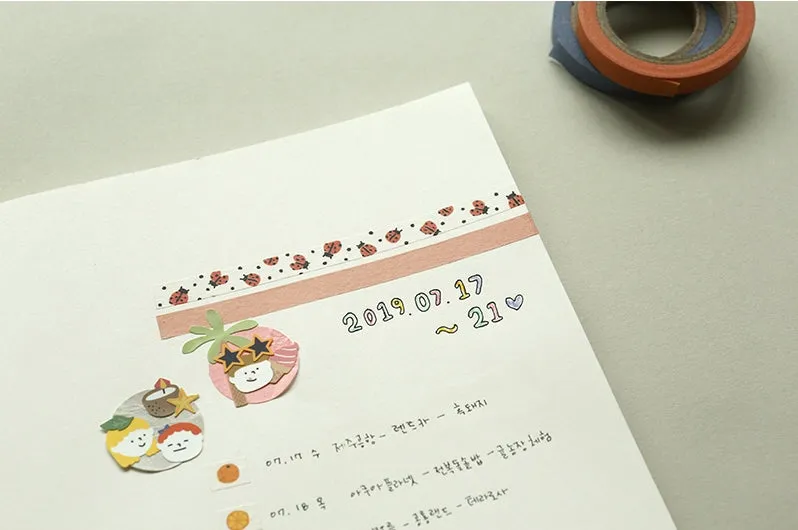 2019.07.17
~ 21♡
07.17 수 제주공항 - 렌트카 - 흑돼지
07.18 목 아쿠아플라넷 - 전복돌솥밥 - 귤농장체험
- 공룡랜드 - 테라로사